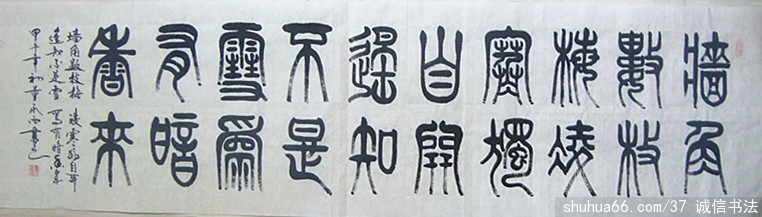 牆角
數枝
梅凌
寒獨
自開
遥知
不是
雪爲
有暗
香來
墙角数枝梅 凌寒独自开
遥知不是雪 为有暗香来
甲午年
shuhua66.com/37 诚信书法